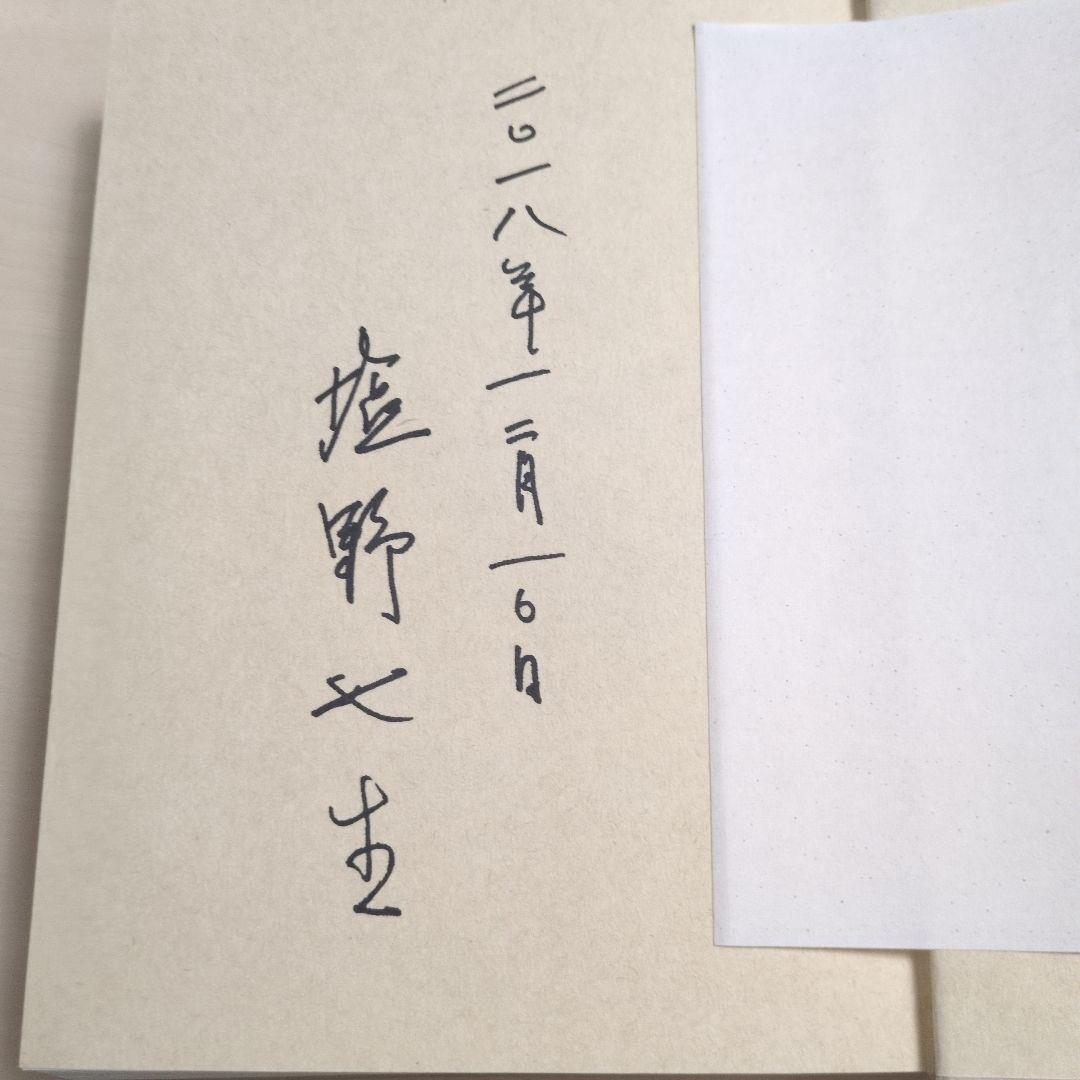 二〇一八年一二月一〇日
塩野七生